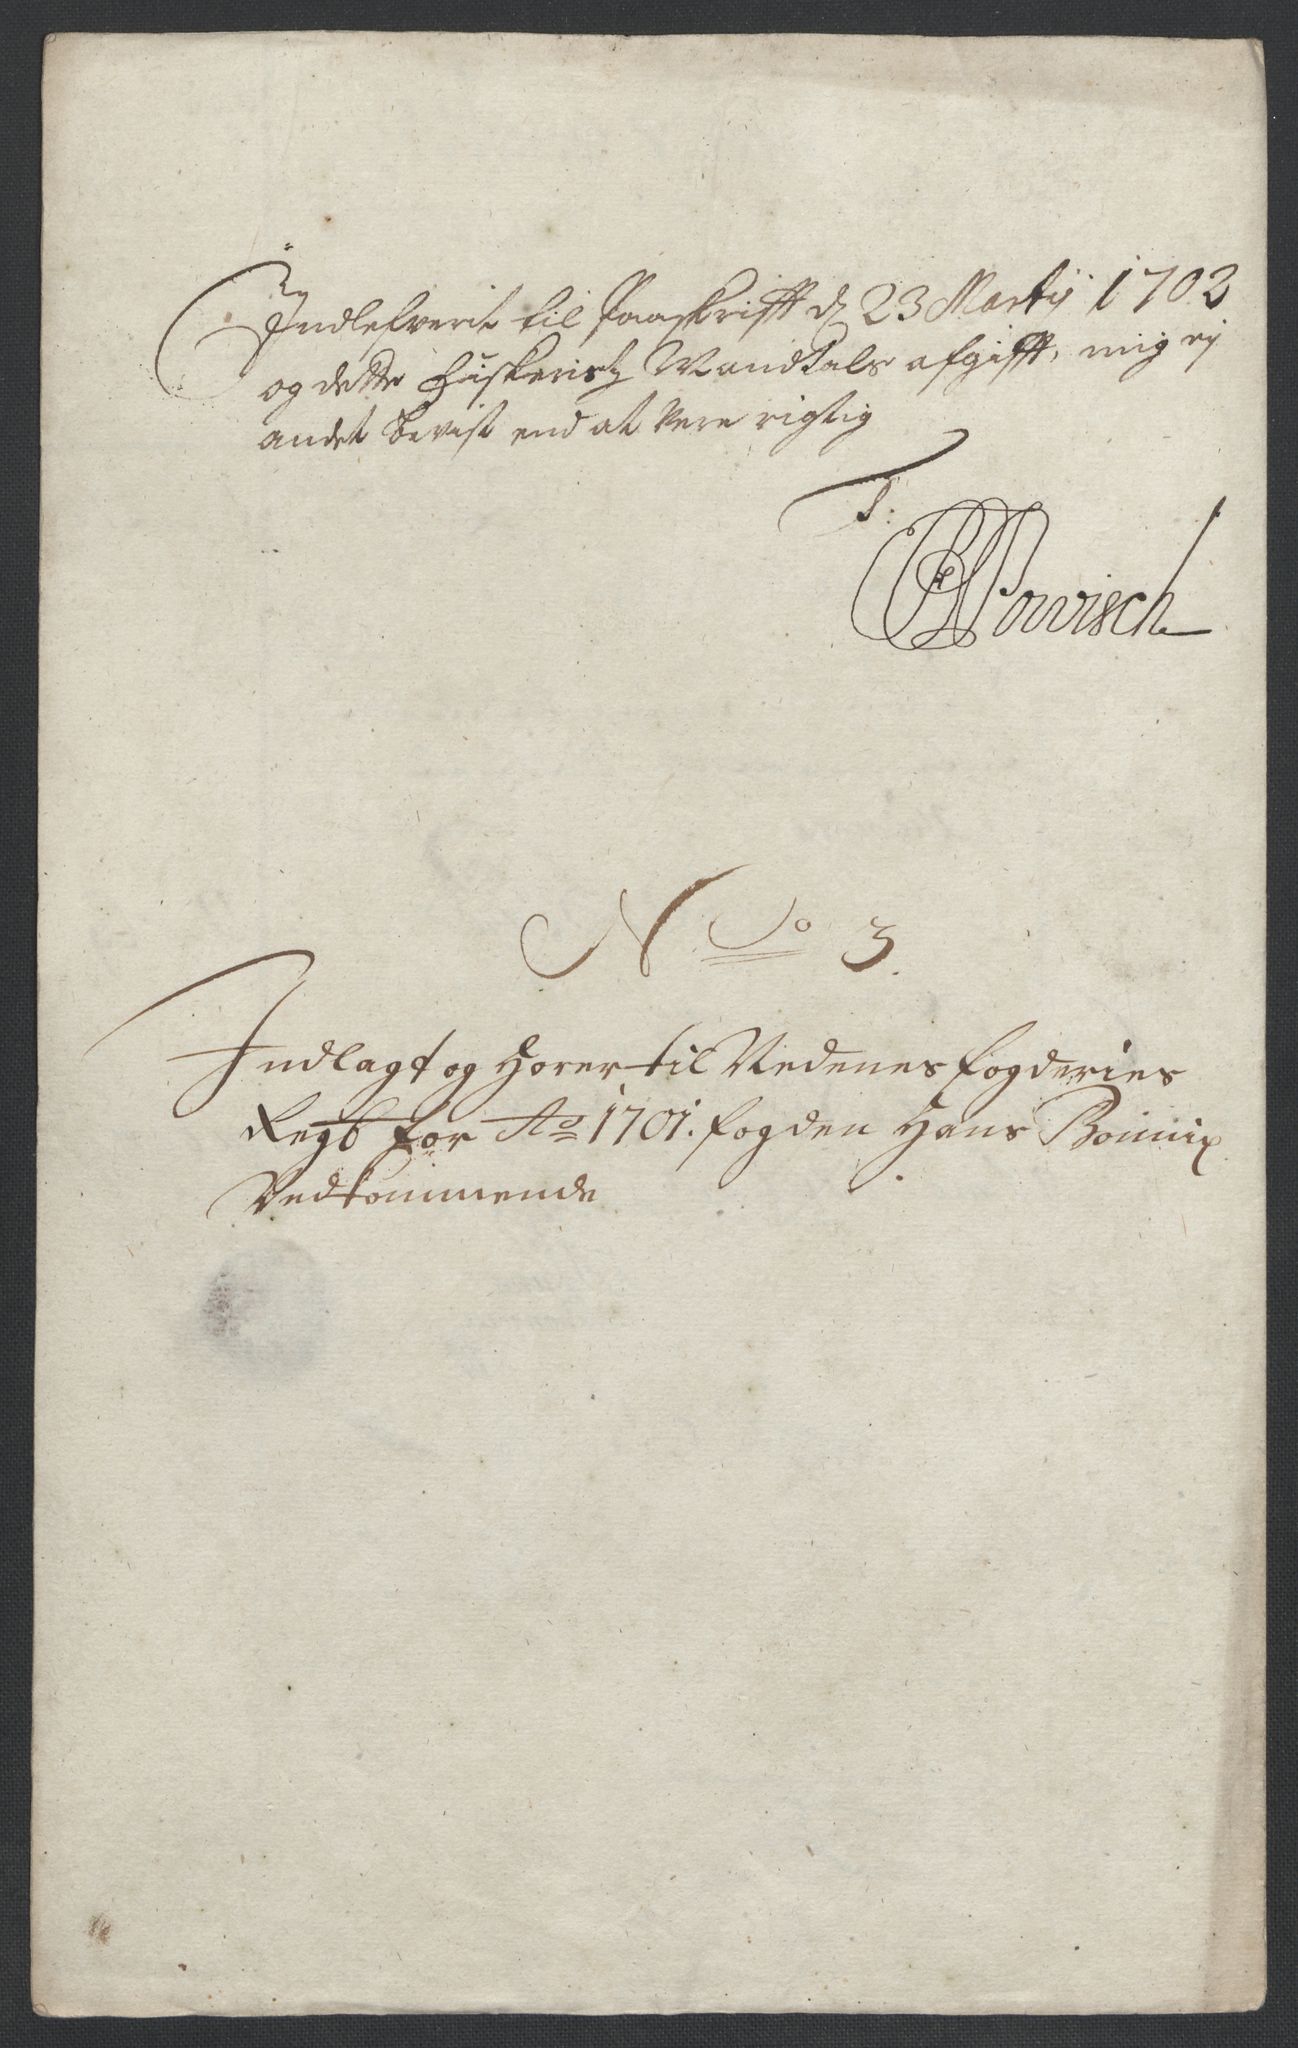 Indlefverit til Paaskrifft d 23 Martij 1702
og dette Huskerisz Mandtals afgifft, mig ej
andet bevist end at Vere rigtig
T:
Powisch
No 3.
Indlagt og Hører til Nedenes fogderies
Regb for Ao 1701. fogden Hans Bönnix
Vedkommende